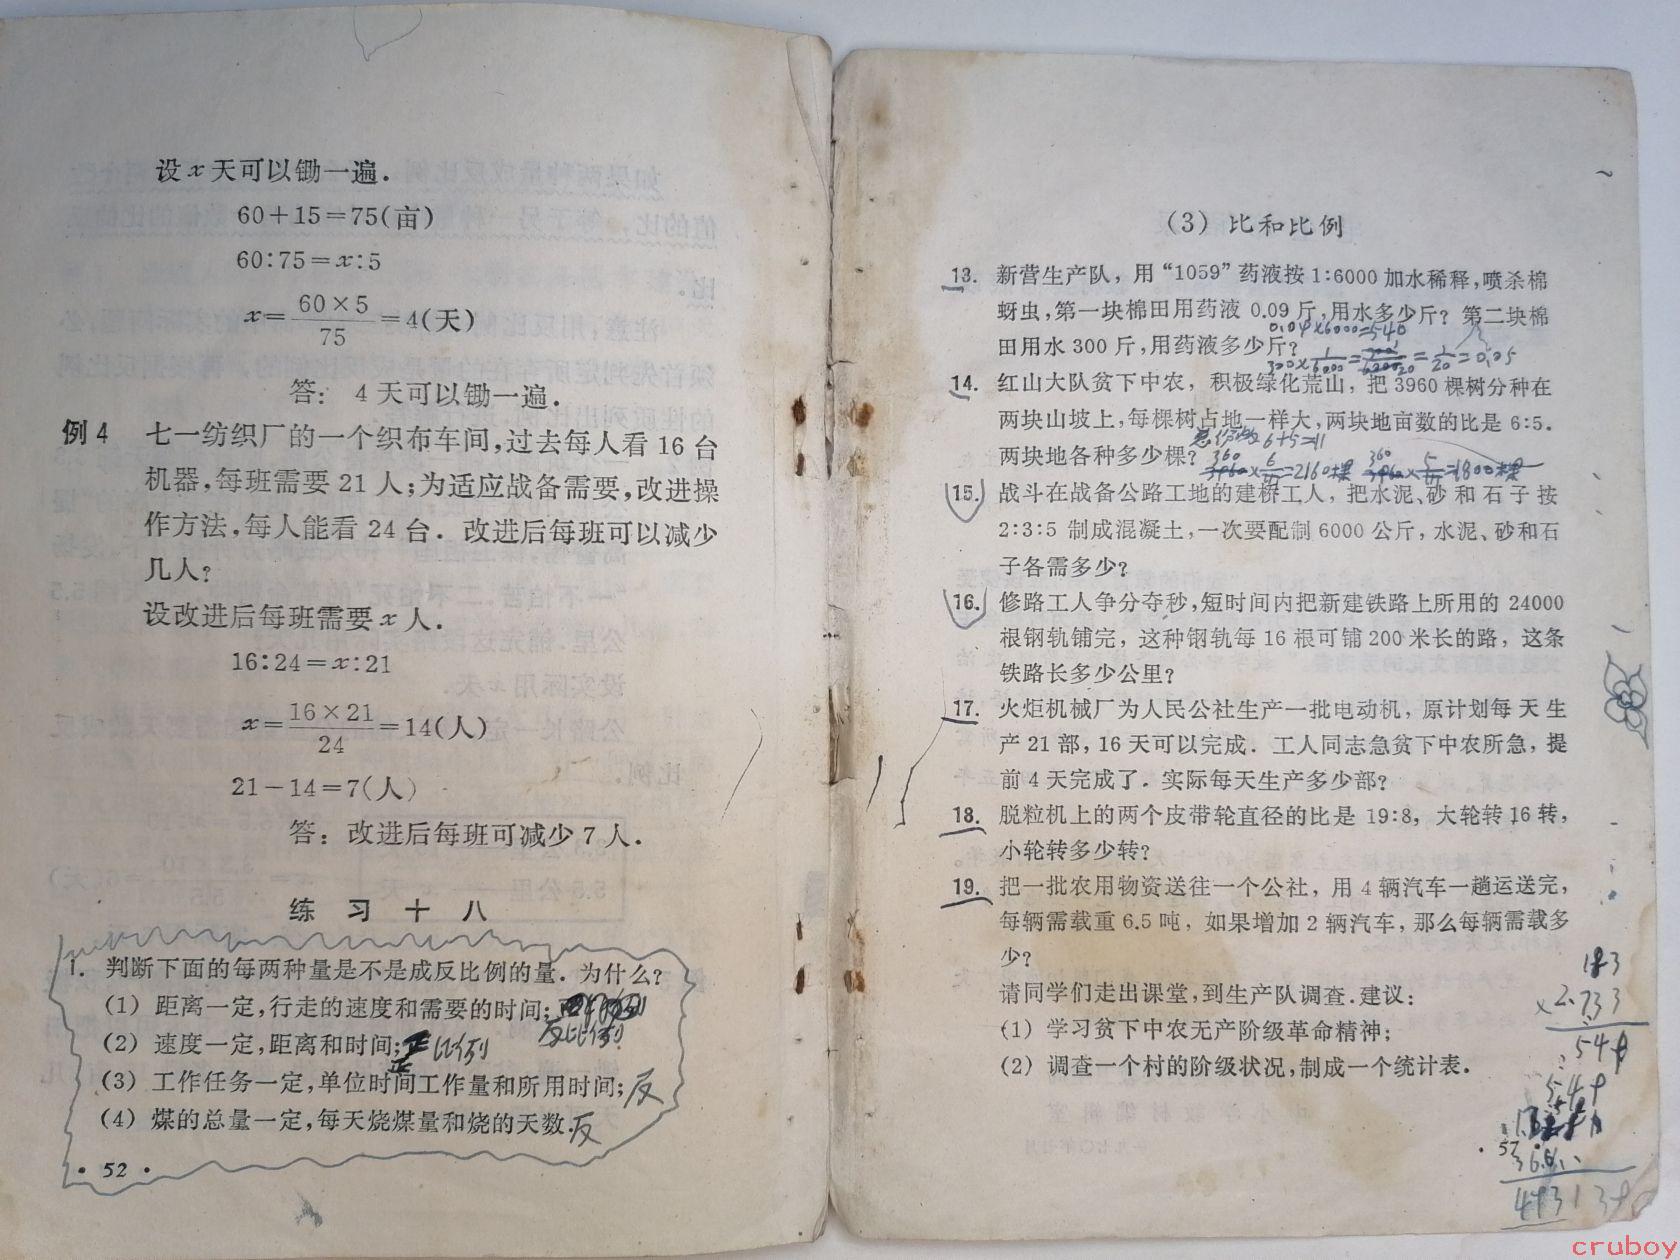 设x天可以锄一遍．
60＋15＝75(亩)
60∶75＝x∶5
x＝60×5/75＝4(天)
答： 4天可以锄一遍．
例4 七一纺织厂的一个织布车间，过去每人看16台
机器，每班需要21人；为适应战备需要，改进操
作方法，每人能看24台．改进后每班可以减少
几人？
设改进后每班需要x人．
16∶24＝x∶21
x＝16×21/24＝14(人)
21－14＝7(人)
答：改进后每班可减少7人．
练习十八
1. 判断下面的每两种量是不是成反比例的量．为什么？
(1) 距离一定，行走的速度和需要的时间；
反比例
(2) 速度一定，距离和时间；正比例
(3) 工作任务一定，单位时间工作量和所用时间；反
(4) 煤的总量一定，每天烧煤量和烧的天数．反
·52·
(3) 比和比例
13. 新营生产队，用“1059”药液按1:6000加水稀释，喷杀棉
蚜虫，第一块棉田用药液0.09斤，用水多少斤？第二块棉
0.09×6000=540
田用水300斤，用药液多少斤？
300×1/6000=300/6000=1/20=0.05
14. 红山大队贫下中农，积极绿化荒山，把3960棵树分种在
两块山坡上，每棵树占地一样大，两块地亩数的比是6:5．
总份数6+5=11
两块地各种多少棵？
3960×6/11=2160棵 3960×5/11=1800棵
15. 战斗在战备公路工地的建桥工人，把水泥、砂和石子按
2:3:5制成混凝土，一次要配制6000公斤，水泥、砂和石
子各需多少？
16. 修路工人争分夺秒，短时间内把新建铁路上所用的24000
根钢轨铺完，这种钢轨每16根可铺200米长的路，这条
铁路长多少公里？
17. 火炬机械厂为人民公社生产一批电动机，原计划每天生
产21部，16天可以完成．工人同志急贫下中农所急，提
前4天完成了．实际每天生产多少部？
18. 脱粒机上的两个皮带轮直径的比是19:8，大轮转16转，
小轮转多少转？
19. 把一批农用物资送往一个公社，用4辆汽车一趟运送完，
每辆需载重6.5吨，如果增加2辆汽车，那么每辆需载多
少？
请同学们走出课堂，到生产队调查．建议：
(1) 学习贫下中农无产阶级革命精神；
(2) 调查一个村的阶级状况，制成一个统计表．
×2.733
549
549
·57·
cruboy